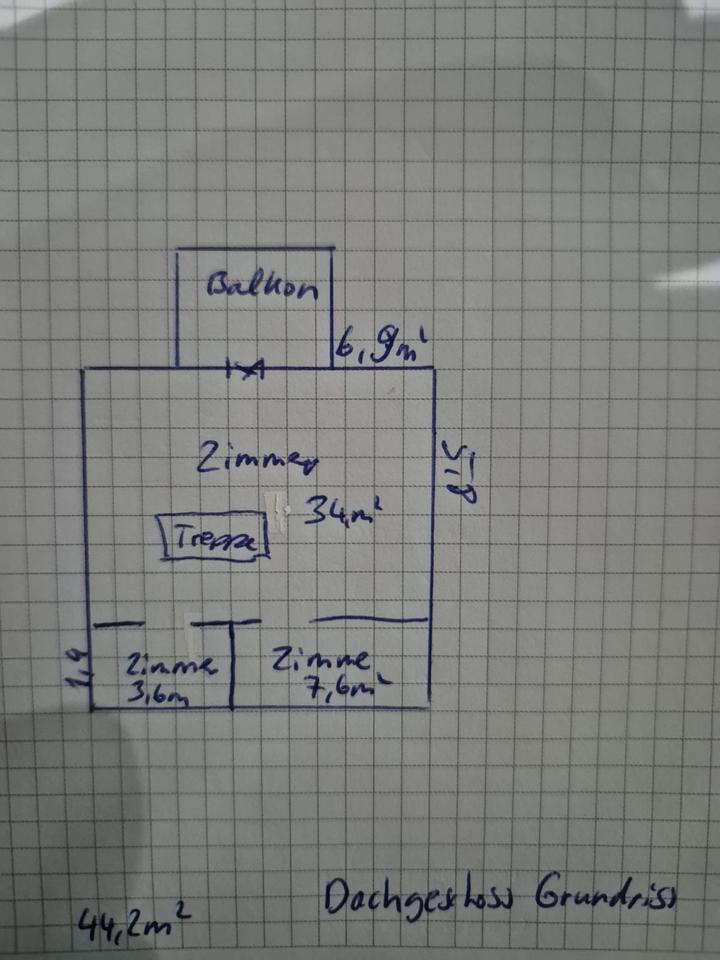 Balkon
6,9m²
Zimmer
34m²
Treppe
Zimme
3,6m
Zimme
7,6m²
1,9
44,2m²
Dachgeschoss Grundriss